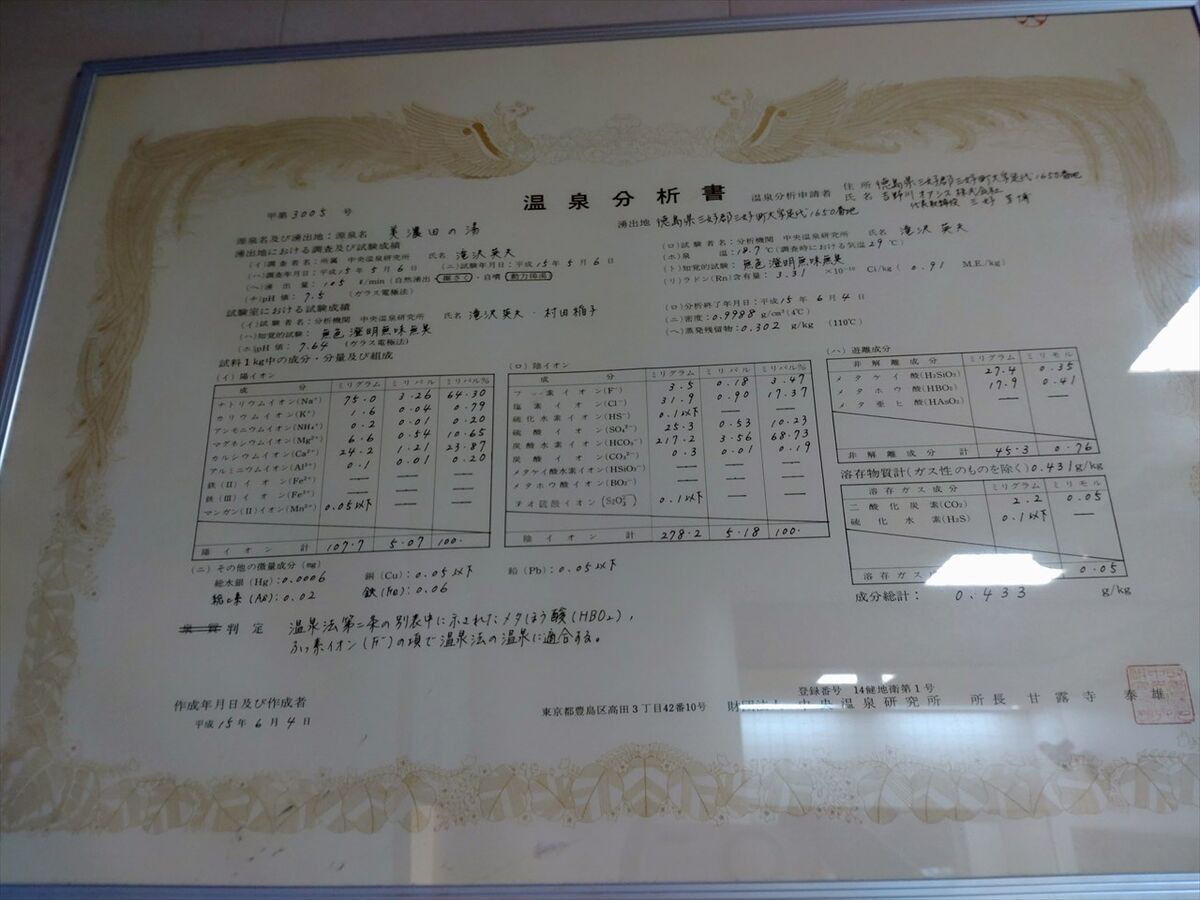 温泉分析書
甲第3005号
温泉分析申請者 住所 徳島県三好郡三好町大字足代1650番地
氏名 吉野川オアシス株式会社
代表取締役 三好
源泉名及び湧出地：源泉名 美濃田の湯 湧出地 徳島県三好郡三好町大字足代1650番地
湧出地における調査及び試験成績
(イ)調査者名：所属 中央温泉研究所 氏名 滝沢英夫
(ロ)試験者名：分析機関 中央温泉研究所 氏名 滝沢英夫
(ハ)調査年月日：平成15年5月6日 (ニ)試験年月日：平成15年5月6日
(ホ)泉温：18.7℃(調査時における気温29℃)
(ヘ)湧出量：105ℓ/min(自然湧出・掘さく・自噴・動力揚湯)
(ト)知覚的試験：無色澄明無味無臭
(チ)pH値：7.5 (ガラス電極法)
(リ)ラドン(Rn)含有量：3.31 ×10⁻¹⁰ Ci/kg( 0.91 M.E./kg)
試験室における試験成績
(イ)試験者名：分析機関 中央温泉研究所 氏名 滝沢英夫・村田稲子
(ロ)分析終了年月日：平成15年6月4日
(ハ)知覚的試験：無色澄明無味無臭
(ニ)密度：0.9998 g/cm³(4℃)
(ホ)pH値：7.64 (ガラス電極法)
(ヘ)蒸発残留物：0.302 g/kg (110℃)
試料1kg中の成分・分量及び組成
(イ)陽イオン
成分 ミリグラム ミリバル ミリバル%
ナトリウムイオン(Na⁺) 75.0 3.26 64.30
カリウムイオン(K⁺) 1.6 0.04 0.79
アンモニウムイオン(NH₄⁺) 0.2 0.01 0.20
マグネシウムイオン(Mg²⁺) 6.6 0.54 10.65
カルシウムイオン(Ca²⁺) 24.2 1.21 23.87
アルミニウムイオン(Al³⁺) 0.1 0.01 0.20
鉄(II)イオン(Fe²⁺) — — —
鉄(III)イオン(Fe³⁺) — — —
マンガン(II)イオン(Mn²⁺) 0.05以下 — —
陽イオン計 107.7 5.07 100.
(ロ)陰イオン
成分 ミリグラム ミリバル ミリバル%
フッ素イオン(F⁻) 3.5 0.18 3.47
塩素イオン(Cl⁻) 31.9 0.90 17.37
硫化水素イオン(HS⁻) 0.1以下 — —
硫酸イオン(SO₄²⁻) 25.3 0.53 10.23
炭酸水素イオン(HCO₃⁻) 217.2 3.56 68.73
炭酸イオン(CO₃²⁻) 0.3 0.01 0.19
メタケイ酸水素イオン(HSiO₃⁻) — — —
メタホウ酸イオン(BO₂⁻) — — —
チオ硫酸イオン(S₂O₃²⁻) 0.1以下 — —
陰イオン計 278.2 5.18 100.
(ハ)遊離成分
非解離成分 ミリグラム ミリモル
メタケイ酸(H₂SiO₃) 27.4 0.35
メタホウ酸(HBO₂) 17.9 0.41
メタ亜ヒ酸(HAsO₂) — —
非解離成分計 45.3 0.76
溶存物質計(ガス性のものを除く)0.431g/kg
溶存ガス成分 ミリグラム ミリモル
二酸化炭素(CO₂) 2.2 0.05
硫化水素(H₂S) 0.1以下 —
溶存ガス 0.05
成分総計： 0.433 g/kg
(ニ)その他の微量成分(mg)
総水銀(Hg)：0.0006 銅(Cu)：0.05以下 鉛(Pb)：0.05以下
総ヒ素(As)：0.02 鉄(Fe)：0.06
泉質判定 温泉法第二条の別表中に示されたメタほう酸(HBO₂)，
ふっ素イオン(F⁻)の項で温泉法の温泉に適合する。
作成年月日及び作成者
平成15年6月4日
登録番号 14健地衛第1号
東京都豊島区高田3丁目42番10号 財団法人 中央温泉研究所 所長 甘露寺 泰雄